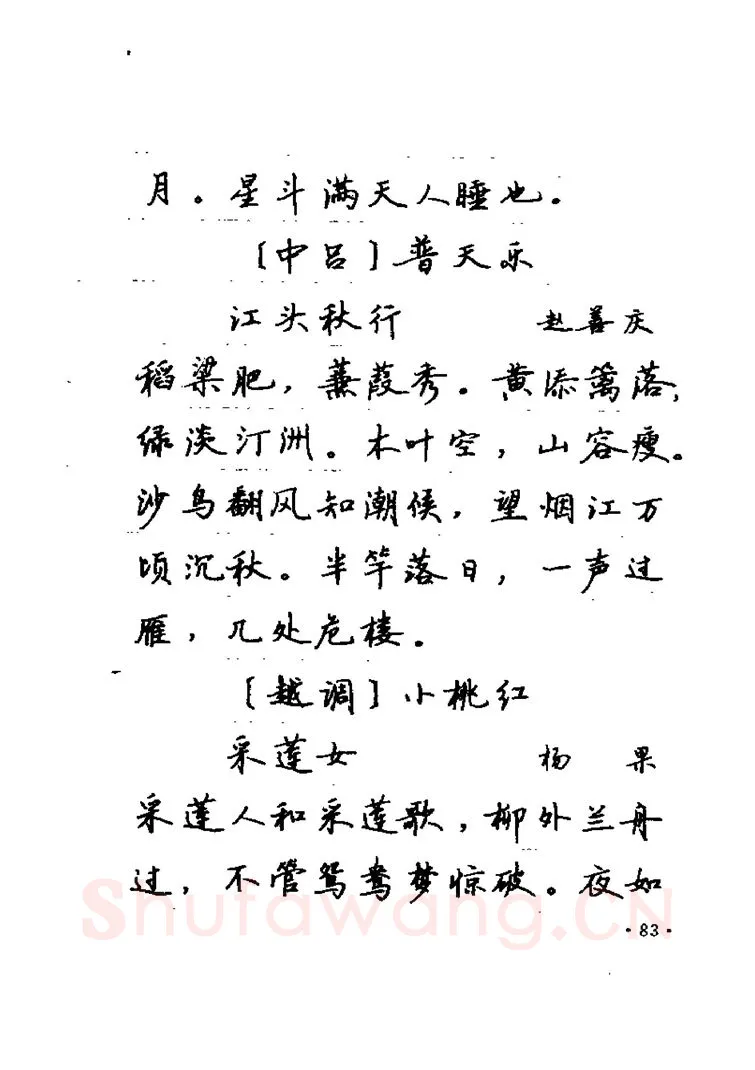 月。星斗满天人睡也。
〔中吕〕普天乐
江头秋行 赵善庆
稻粱肥，蒹葭秀。黄添篱落，
绿淡汀洲。木叶空，山容瘦。
沙鸟翻风知潮候，望烟江万
顷沉秋。半竿落日，一声过
雁，几处危楼。
〔越调〕小桃红
采莲女 杨果
采莲人和采莲歌，柳外兰舟
过，不管鸳鸯梦惊破。夜如
Shufawang.CN
·83·